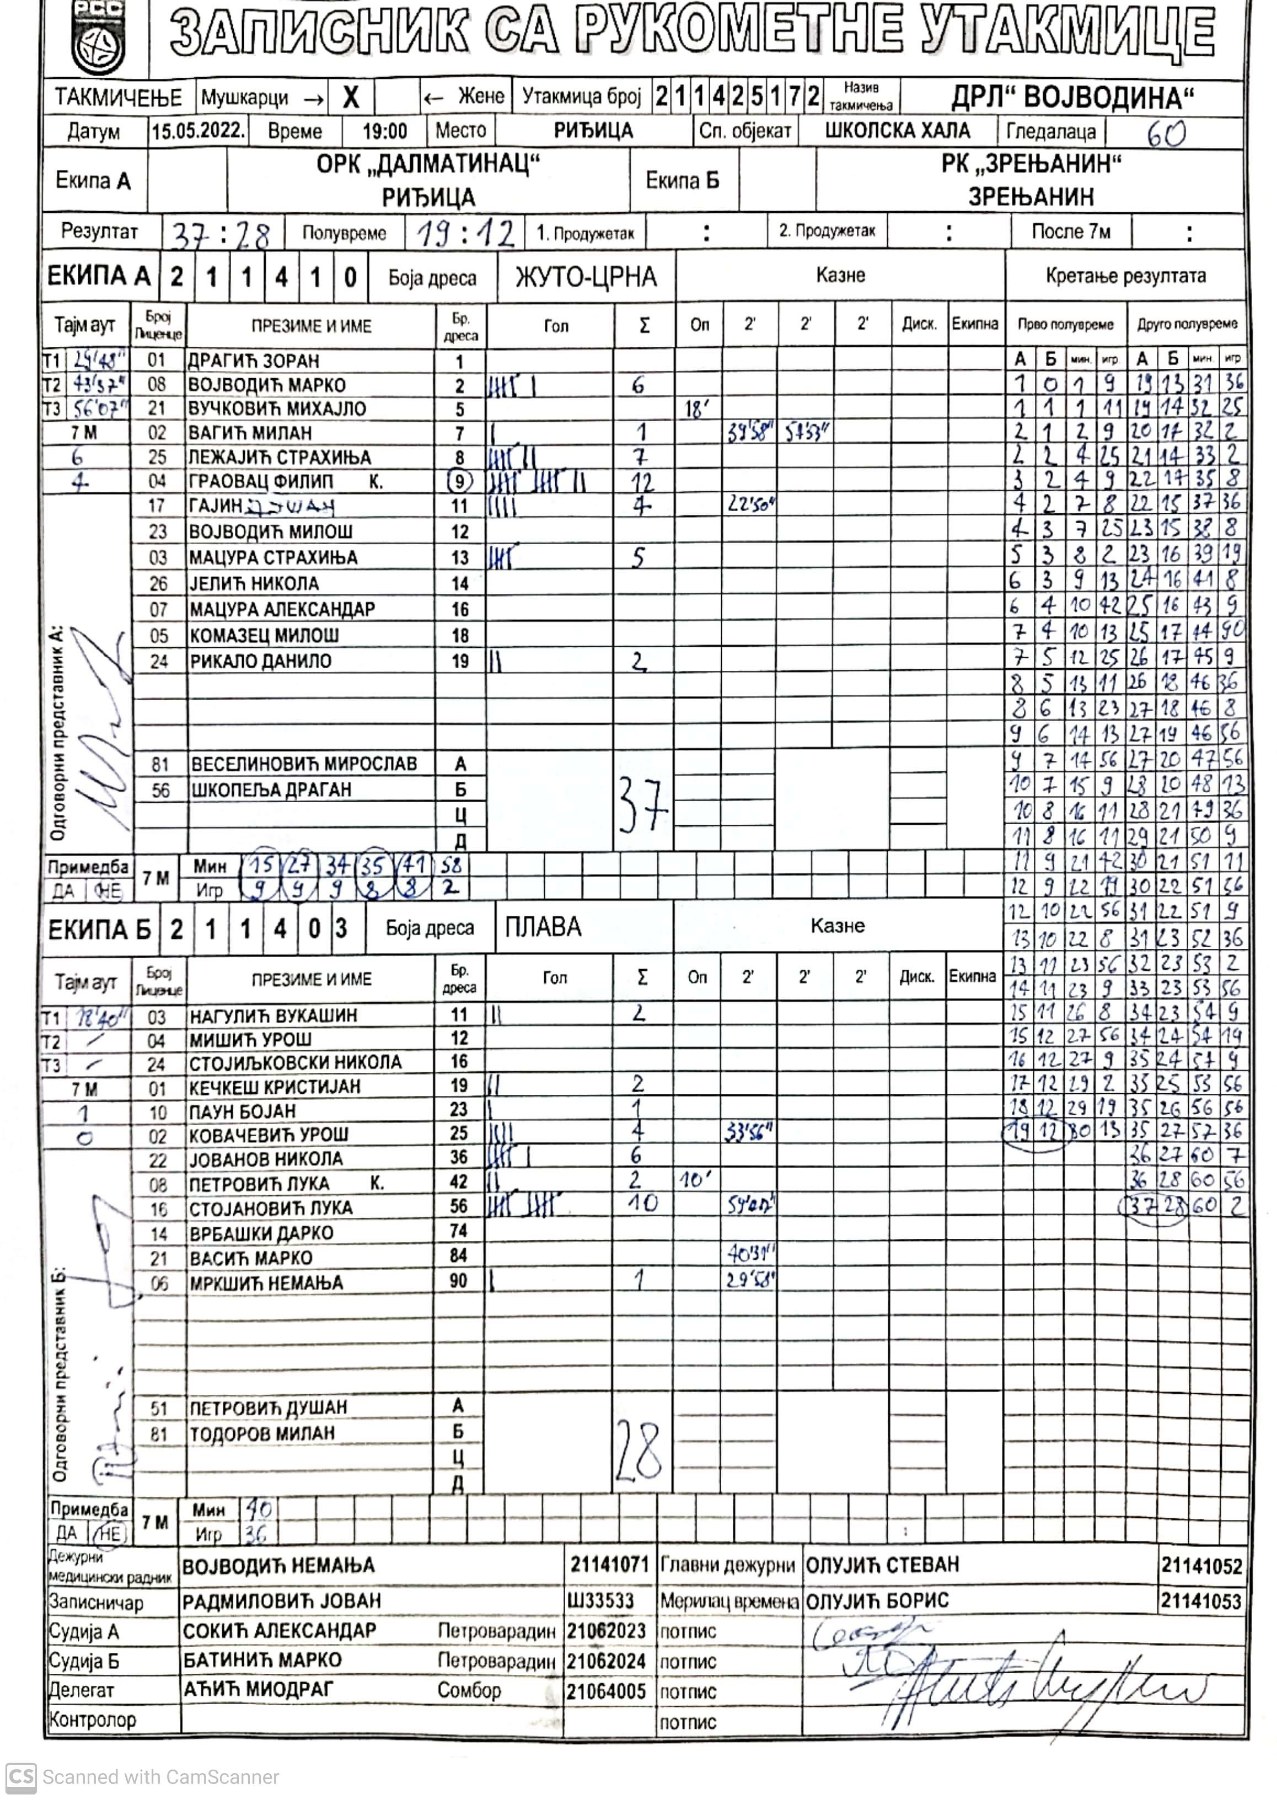 РСС
ЗАПИСНИК СА РУКОМЕТНЕ УТАКМИЦЕ
ТАКМИЧЕЊЕ Мушкарци → X ← Жене Утакмица број 2 1 1 4 2 5 1 7 2 Назив такмичења ДРЛ“ ВОЈВОДИНА“
Датум 15.05.2022. Време 19:00 Место РИЂИЦА Сп. објекат ШКОЛСКА ХАЛА Гледалаца 60
Екипа А ОРК „ДАЛМАТИНАЦ“ РИЂИЦА Екипа Б РК „ЗРЕЊАНИН“ ЗРЕЊАНИН
Резултат 37:28 Полувреме 19:12 1. Продужетак : 2. Продужетак : После 7м :
ЕКИПА А 2 1 1 4 1 0 Боја дреса ЖУТО-ЦРНА Казне Кретање резултата
Тајм аут Број Лиценце ПРЕЗИМЕ И ИМЕ Бр. дреса Гол Σ Оп 2' 2' 2' Диск. Екипна Прво полувреме Друго полувреме
А Б мин. игр А Б мин. игр
T1 29'48" 01 ДРАГИЋ ЗОРАН 1
T2 43'37" 08 ВОЈВОДИЋ МАРКО 2 6 1 0 1 9 19 13 31 36
T3 56'07" 21 ВУЧКОВИЋ МИХАЈЛО 5 18' 1 1 1 11 19 14 32 25
7 М 02 ВАГИЋ МИЛАН 7 1 39'58" 2 1 2 9 20 14 32 2
6 25 ЛЕЖАЈИЋ СТРАХИЊА 8 7 2 2 4 25 21 14 33 2
4 04 ГРАОВАЦ ФИЛИП К. 9 12 3 2 4 9 22 14 35 8
17 ГАЈИН ДЕЈАН 11 4 22'50" 4 2 7 8 22 15 37 36
23 ВОЈВОДИЋ МИЛОШ 12 4 3 7 25 23 15 38 8
03 МАЦУРА СТРАХИЊА 13 5 5 3 8 2 23 16 39 19
26 ЈЕЛИЋ НИКОЛА 14 6 3 9 13 24 16 41 8
07 МАЦУРА АЛЕКСАНДАР 16 6 4 10 42 25 16 43 9
05 КОМАЗЕЦ МИЛОШ 18 7 4 10 13 25 17 44 90
24 РИКАЛО ДАНИЛО 19 2 7 5 12 25 26 17 45 9
8 5 13 11 26 18 46 36
8 6 13 23 27 18 46 8
9 6 14 13 27 19 46 56
81 ВЕСЕЛИНОВИЋ МИРОСЛАВ А 9 7 14 56 27 20 47 56
56 ШКОПЕЉА ДРАГАН Б 37 10 7 15 9 28 20 48 13
Ц 10 8 16 11 28 21 49 36
Д 11 8 16 11 29 21 50 9
Одговорни представник А:
Примедба 7 М Мин 15 27 34 35 41 58 11 9 21 42 30 21 51 11
ДА НЕ Игр 9 9 9 8 8 2 12 9 22 30 22 51 56
ЕКИПА Б 2 1 1 4 0 3 Боја дреса ПЛАВА Казне 12 10 22 56 31 22 51 9
13 10 22 8 31 23 52 36
Тајм аут Број Лиценце ПРЕЗИМЕ И ИМЕ Бр. дреса Гол Σ Оп 2' 2' 2' Диск. Екипна 13 11 23 56 32 23 53 2
14 11 23 9 33 23 53 56
T1 18'40" 03 НАГУЛИЋ ВУКАШИН 11 2 15 11 26 8 34 23 54 9
T2 / 04 МИШИЋ УРОШ 12 15 12 27 56 34 24 54 19
T3 / 24 СТОЈИЉКОВСКИ НИКОЛА 16 16 12 27 9 35 24 54 9
7 М 01 КЕЧКЕШ КРИСТИЈАН 19 2 17 12 29 2 35 25 55 56
1 10 ПАУН БОЈАН 23 1 18 12 29 19 35 26 56 56
0 02 КОВАЧЕВИЋ УРОШ 25 4 33'56" 19 12 30 13 35 27 57 36
22 ЈОВАНОВ НИКОЛА 36 6 36 27 60 7
08 ПЕТРОВИЋ ЛУКА К. 42 2 10' 36 28 60 56
16 СТОЈАНОВИЋ ЛУКА 56 10 37 28 60 2
14 ВРБАШКИ ДАРКО 74
21 ВАСИЋ МАРКО 84 40'31"
06 МРКШИЋ НЕМАЊА 90 1 29'58"
Одговорни представник Б:
51 ПЕТРОВИЋ ДУШАН А
81 ТОДОРОВ МИЛАН Б 28
Ц
Д
Примедба 7 М Мин 40
ДА НЕ Игр 36
Дежурни медицински радник ВОЈВОДИЋ НЕМАЊА 21141071 Главни дежурни ОЛУЈИЋ СТЕВАН 21141052
Записничар РАДМИЛОВИЋ ЈОВАН Ш33533 Мерилац времена ОЛУЈИЋ БОРИС 21141053
Судија А СОКИЋ АЛЕКСАНДАР Петроварадин 21062023 потпис
Судија Б БАТИНИЋ МАРКО Петроварадин 21062024 потпис
Делегат АЋИЋ МИОДРАГ Сомбор 21064005 потпис
Контролор потпис
CS Scanned with CamScanner